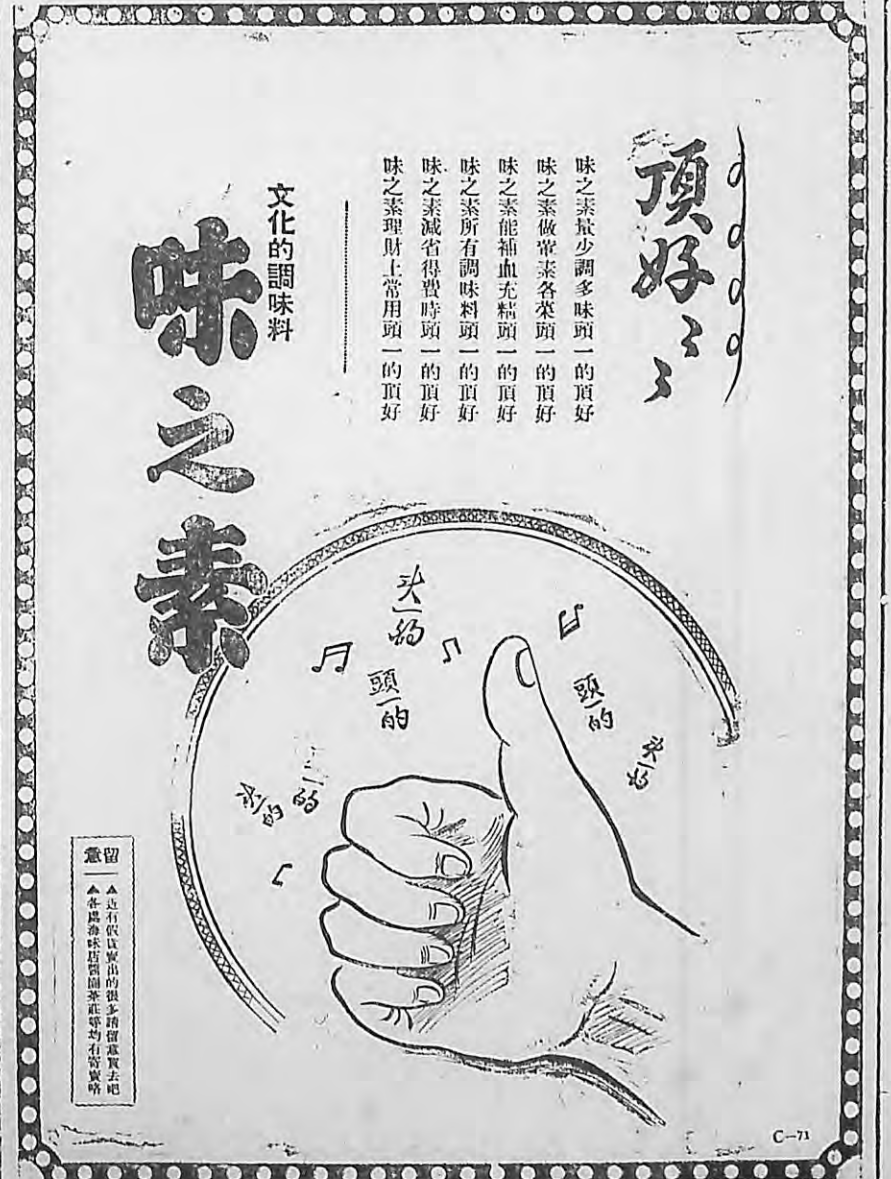 頂好ミミ
味之素量少調多味頭一的頂好
味之素做葷素各菜頭一的頂好
味之素能補血充精頭一的頂好
味之素所有調味料頭一的頂好
味之素減省得費時頭一的頂好
味之素理財上常用頭一的頂好
文化的調味料
味之素
头一的
頭一的
頭一的
头一的
一的
头一的
留意
▲近有假貨賣出的很多請留意買去吧
▲各處海味店醬園茶莊等均有寄賣咯
C-71